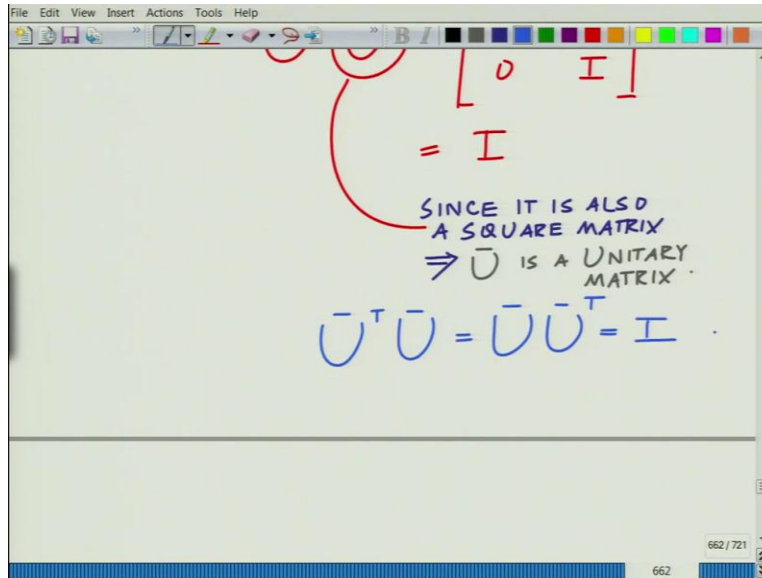 File Edit View Insert Actions Tools Help
B I
0 I
= I
SINCE IT IS ALSO
A SQUARE MATRIX
⇒ Ū IS A UNITARY
MATRIX.
Ūᵀ Ū = Ū Ūᵀ = I .
662 / 721
662